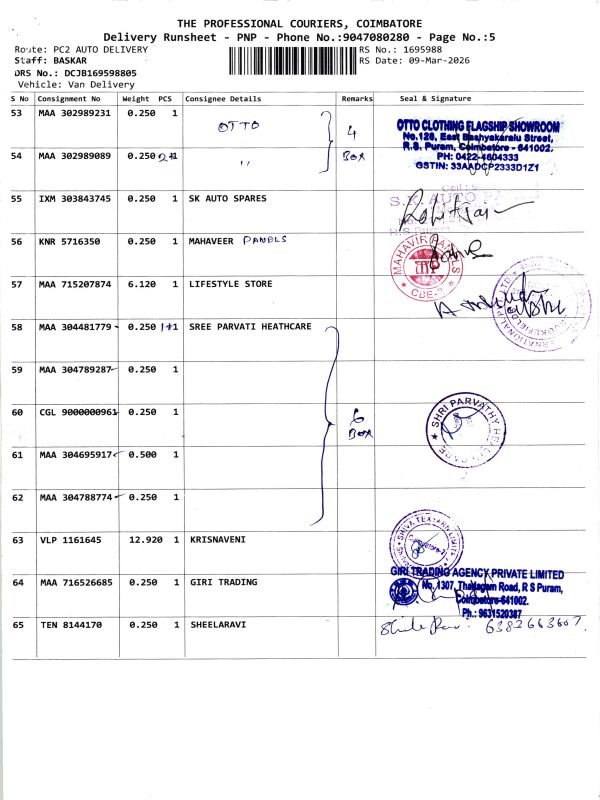 THE PROFESSIONAL COURIERS, COIMBATORE
Delivery Runsheet - PNP - Phone No.:9047080280 - Page No.:5
Route: PC2 AUTO DELIVERY
RS No.: 1695988
Staff: BASKAR
RS Date: 09-Mar-2026
DRS No.: DCJB169598805
Vehicle: Van Delivery
S No Consignment No Weight PCS Consignee Details Remarks Seal & Signature
53 MAA 302989231 0.250 1 OTTO 4
54 MAA 302989089 0.250 2+1 " BOX
OTTO CLOTHING FLAGSHIP SHOWROOM
No.126, East Bashyakaralu Street,
R.S. Puram, Coimbatore - 641002.
PH: 0422-4604333
GSTIN: 33AADCP2333D1Z1
55 IXM 303843745 0.250 1 SK AUTO SPARES
56 KNR 5716350 0.250 1 MAHAVEER PANELS
MAHAVIR PANELS
CBE-2
57 MAA 715207874 6.120 1 LIFESTYLE STORE
58 MAA 304481779 0.250 1+1 SREE PARVATI HEATHCARE
59 MAA 304789287 0.250 1
60 CGL 9000000961 0.250 1 6
BOX
SHRI PARVATHY HEALTH CARE
61 MAA 304695917 0.500 1
62 MAA 304788774 0.250 1
63 VLP 1161645 12.920 1 KRISNAVENI
64 MAA 716526685 0.250 1 GIRI TRADING
GIRI TRADING AGENCY PRIVATE LIMITED
No. 1307, Thadagam Road, R S Puram,
Coimbatore-641002.
Ph.: 9631520387
65 TEN 8144170 0.250 1 SHEELARAVI
6382663607